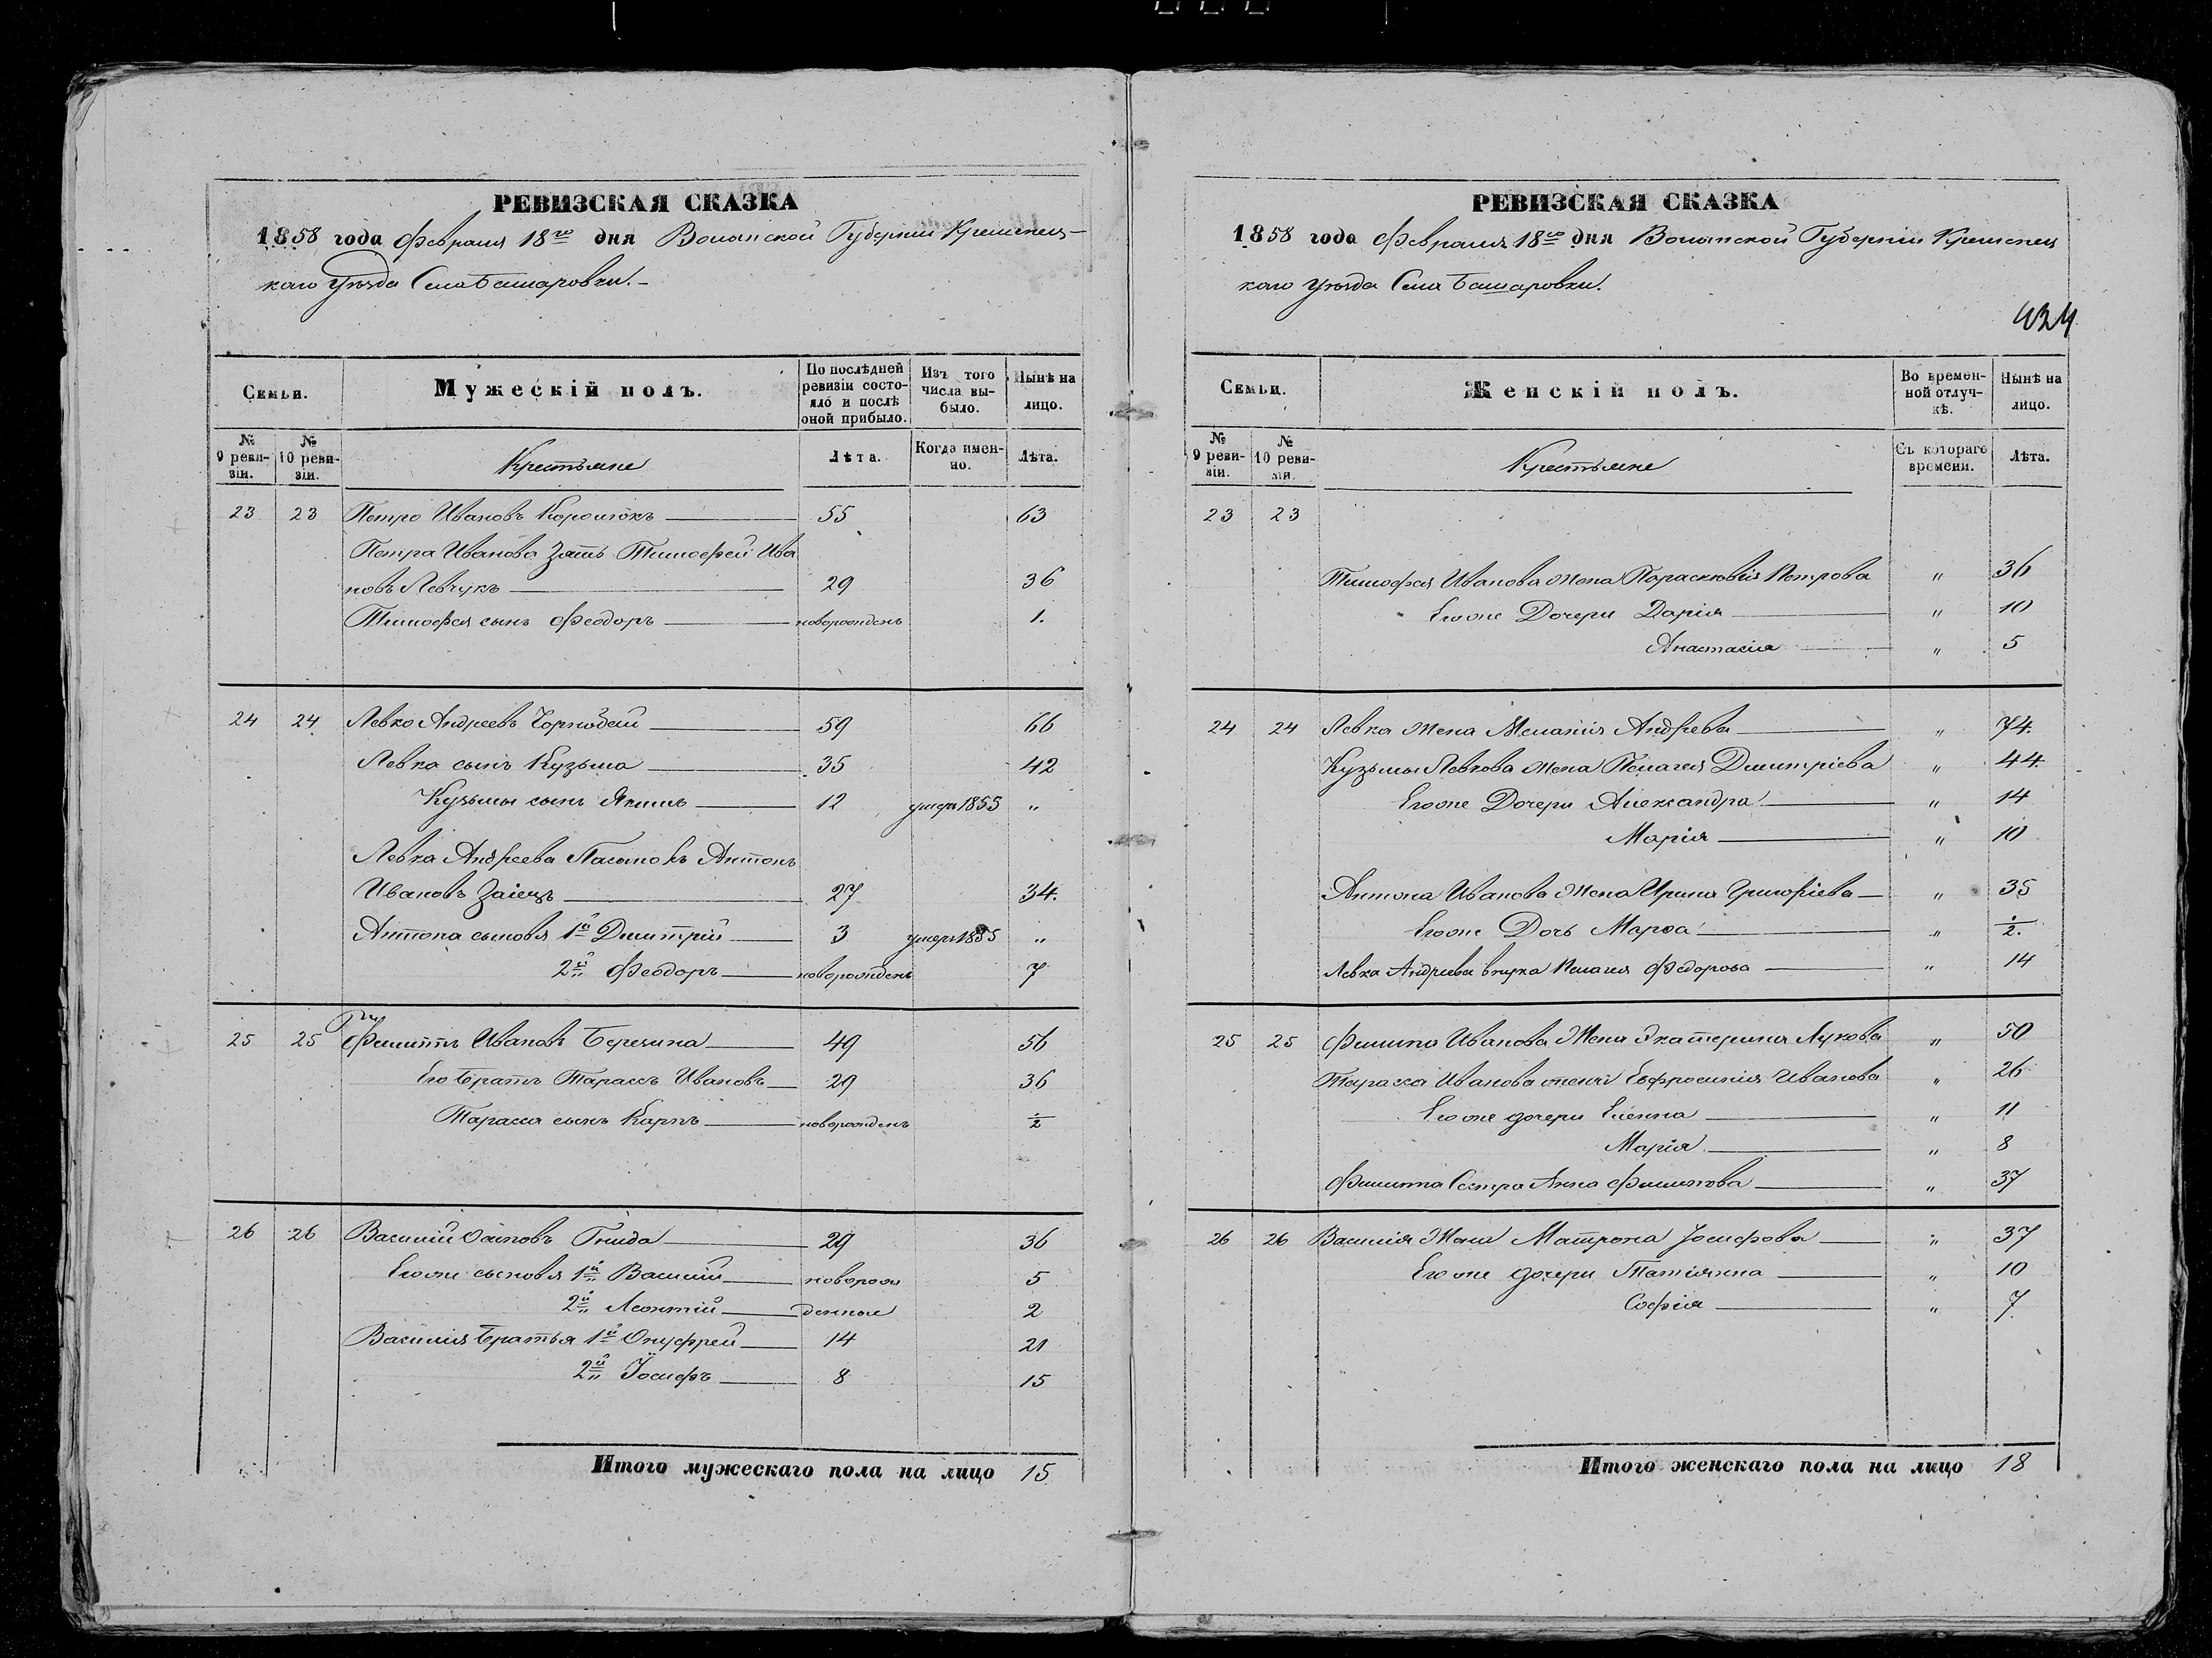 РЕВИЗСКАЯ СКАЗКА
1858 года Февраля 18го дня Волынской Губернии Кременец-
каго Уѣзда Села Башаровки.-
Семьи.
Мужескій полъ.
По послѣдней ревизіи состо-яло и послѣ оной прибыло.
Изъ того числа вы-было.
Нынѣ на лицо.
№ 9 реви-зіи.
№ 10 реви-зіи.
Крестьяне
Лѣта.
Когда имен-но.
Лѣта.
23 23 Петро Ивановъ 55 63
Петра Иванова Зять Тимофей Ива
новъ Левчукъ 29 36
Тимофея сынъ Феодоръ новорожденъ 1.
24 24 Левко Андреевъ 59 66
Левка сынъ Кузьма 35 42
Кузьмы сынъ Якимъ 12 умеръ 1855 "
Левка Андреева Пасынокъ Антонъ
Ивановъ Заіецъ 27 34.
Антона сыновья 1й Дмитрій 3 умеръ 1855 "
2й Феодоръ новорожденъ 7
25 25 Филиппъ Ивановъ Березина 49 56
Его братъ Тарасъ Ивановъ 29 36
Тараса сынъ Карпъ новорожденъ 1/2
26 26 Василій Гнида 29 36
Егоже сыновья 1й Василій новорож 5
2й Леонтій денные 2
Василія братья 1й Онуфрей 14 21
2й Іосифъ 8 15
Итого мужескаго пола на лицо 15
РЕВИЗСКАЯ СКАЗКА
1858 года Февраля 18го дня Волынской Губерніи Кременец
каго Уѣзда Села Башаровки.
434
Семьи.
Женскій полъ.
Во времен-ной отлуч-кѣ.
Нынѣ на лицо.
№ 9 реви-зіи.
№ 10 реви-зіи.
Крестьяне
Съ котораго времени.
Лѣта.
23 23
Тимофея Иванова жена Параскювія Петрова " 36
Егоже Дочери Дарія " 10
Анастасія " 5
24 24 Левка жена Меланія Андреева " 74.
Кузьмы Левкова жена Пелагея Дмитріева " 44.
Егоже Дочери Александра " 14
Марія " 10
Антона Иванова жена Ирина Григоріева " 35
Егоже Дочь Марѳа " 1/2.
Левка Андреева внука Пелагея Федорова " 14
25 25 Филипа Иванова Жена Екатерина Лукова " 50
Тараса Иванова жена Евфросинія Иванова " 26
Егоже дочери Еленна " 11
Марія " 8
Филиппа Сестра Анна Филипова " 37
26 26 Василія Жена Матрона Іосифова " 37
Егоже дочери Татіянна " 10
Софія " 7.
Итого женскаго пола на лицо 18